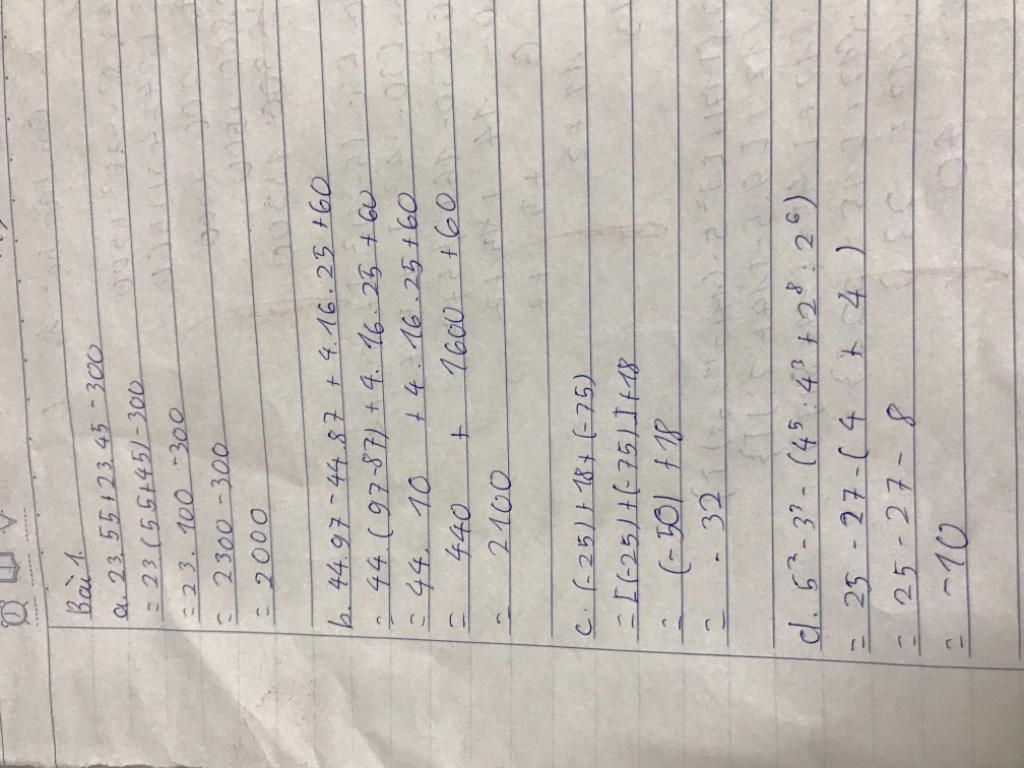 Bài 1.
a. 23.55+23.45-300
= 23.(55+45)-300
= 23.100-300
= 2300-300
= 2000
b. 44.97-44.87+4.16.25+60
= 44(97-87)+4.16.25+60
= 44.10+4.16.25+60
= 440+1600+60
= 2100
c. (-25)+18+(-75)
= [(-25)+(-75)]+18
= (-50)+18
= -32
d. 5²-3³-(4⁵:4³+2⁸:2⁶)
= 25-27-(4+4)
= 25-27-8
= -10